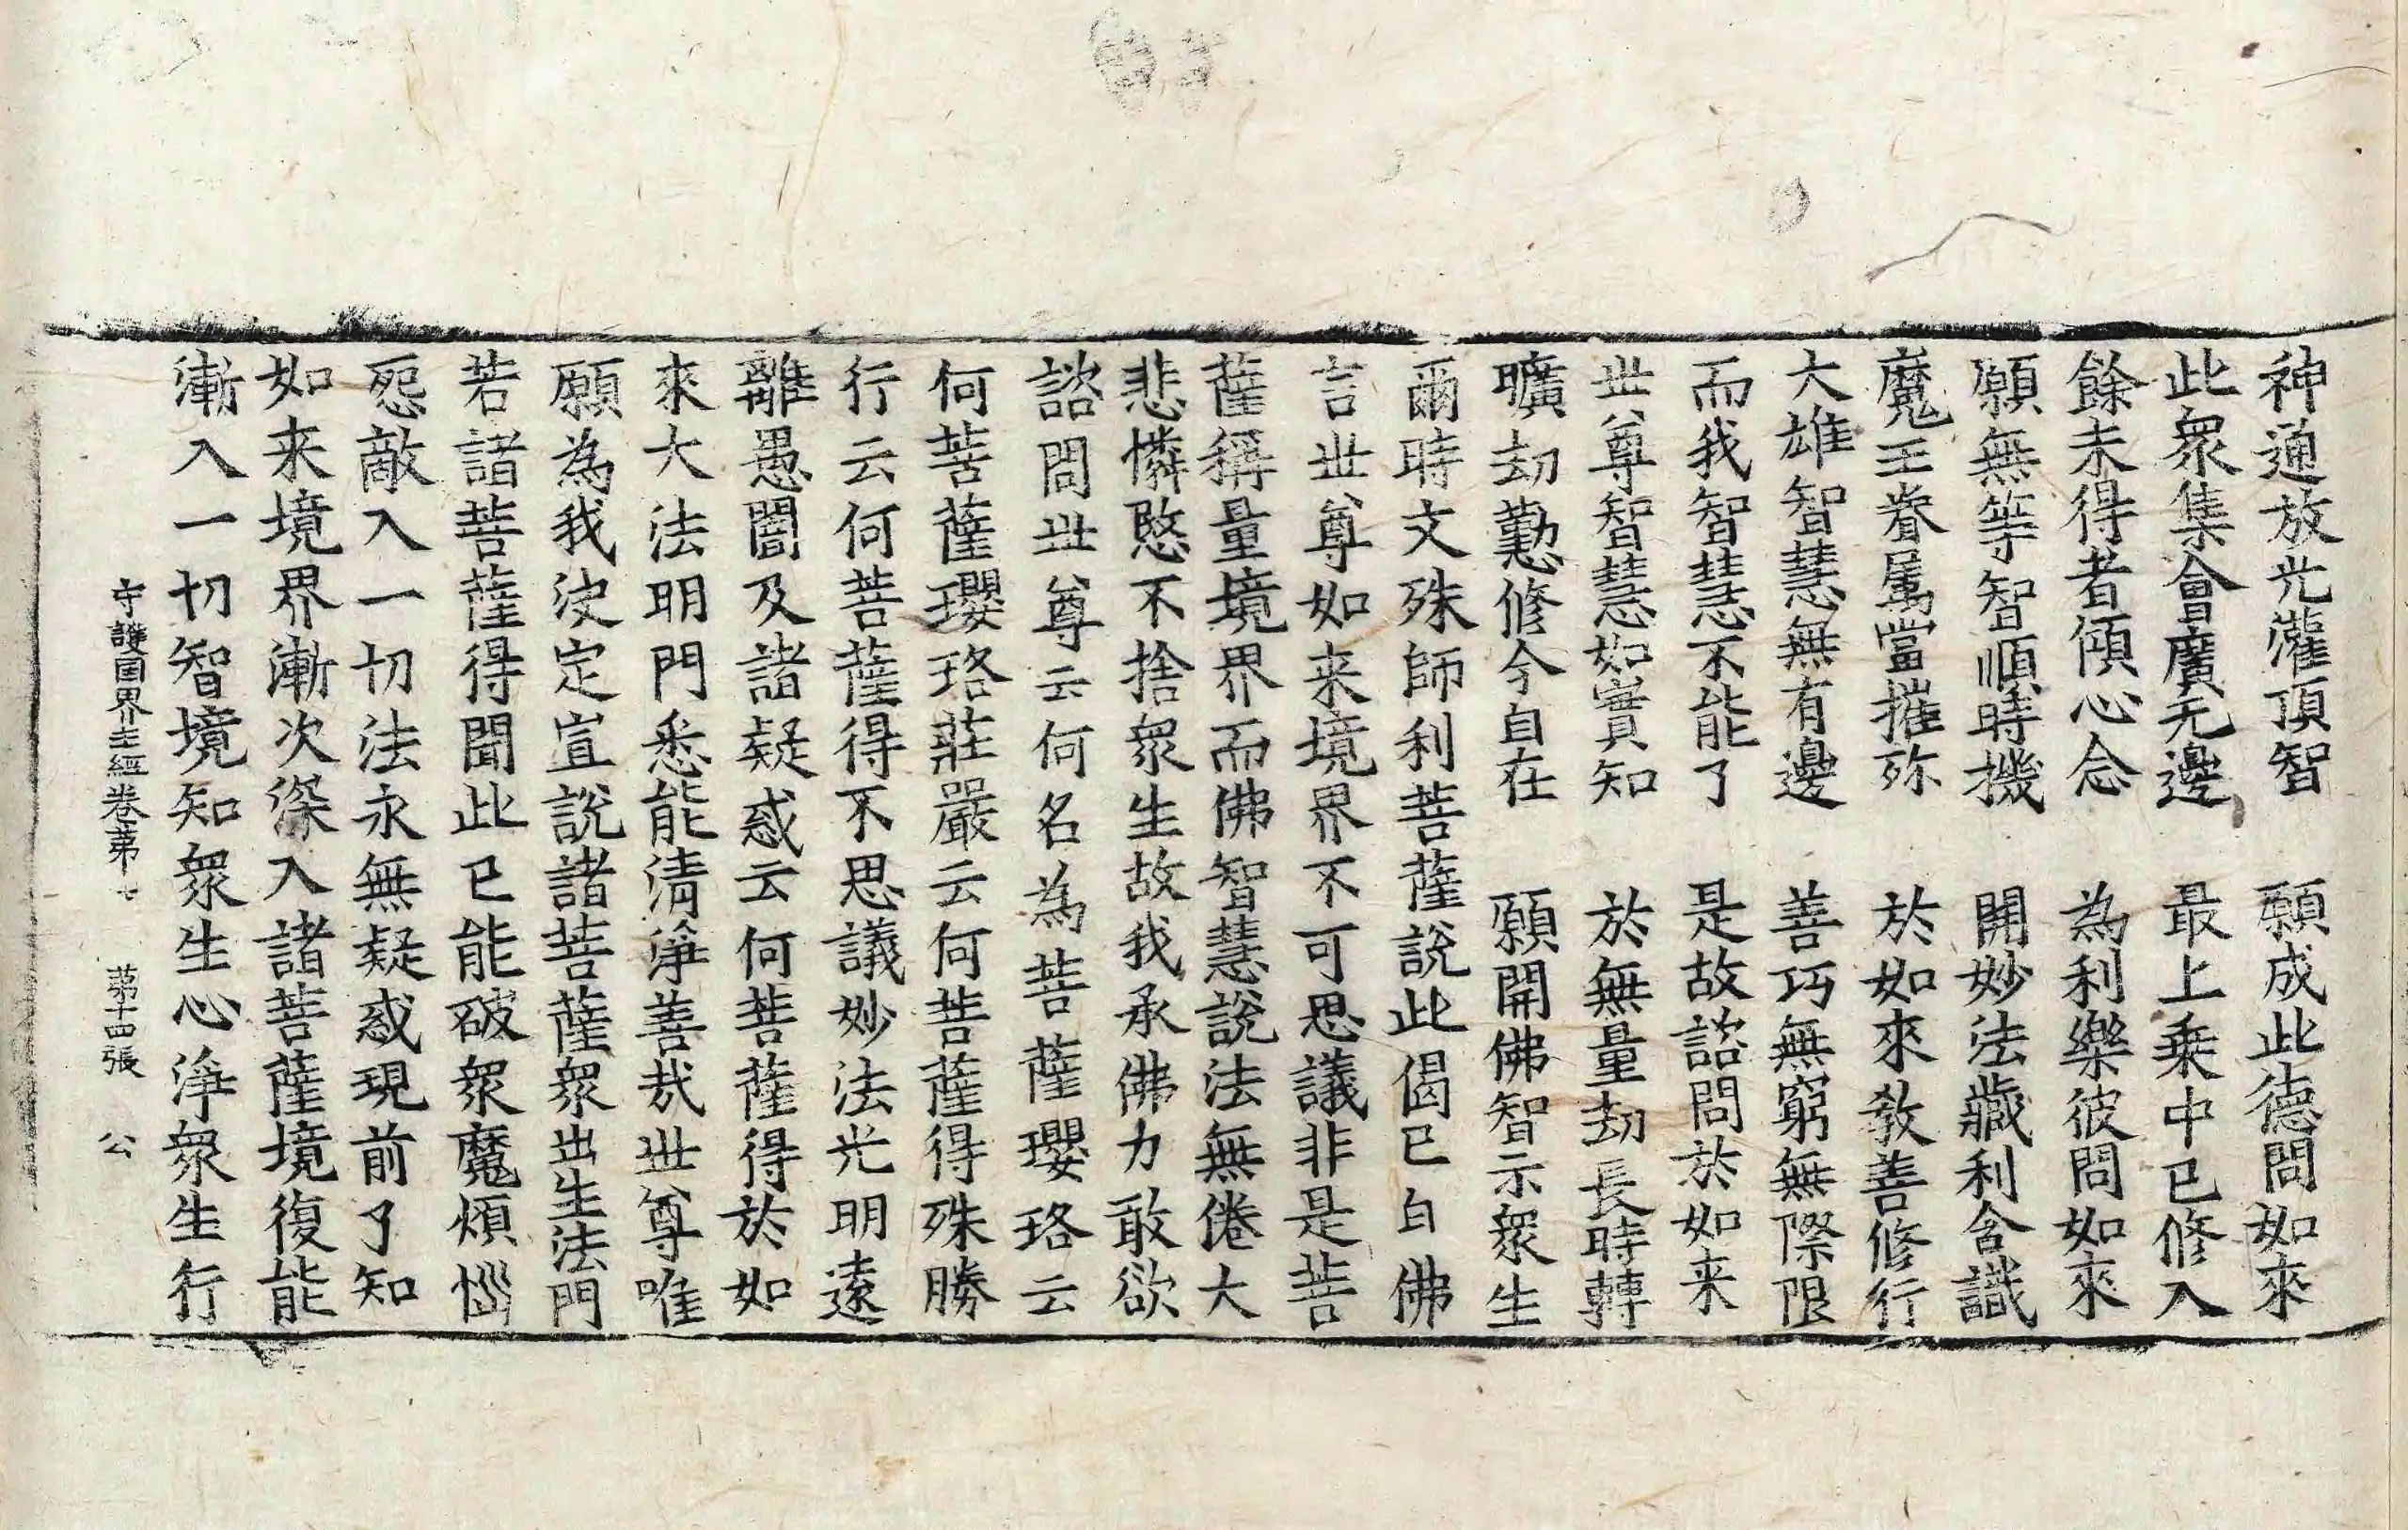 神通放光灌頂智　願成此德問如來
此衆集會廣无邊　最上乗中已修入
餘未得者傾心念　為利樂彼問如來
願無等智順時機　開妙法藏利含識
魔王眷属當摧殄　於如來教善修行
大雄智慧無有邊　善巧無窮無際限
而我智慧不能了　是故諮問於如来
世尊智慧如實知　於無量劫長時轉
曠劫懃修今自在　願開佛智示衆生
爾時文殊師利菩薩說此偈已白佛
言世尊如来境界不可思議非是菩
薩稱量境界而佛智慧說法無倦大
悲憐愍不捨衆生故我承佛力敢欲
諮問世尊云何名為菩薩瓔珞云
何菩薩瓔珞莊嚴云何菩薩得殊勝
行云何菩薩得不思議妙法光明遠
離愚闇及諸疑惑云何菩薩得於如
來大法明門悉能清淨善哉世尊唯
願為我決定宣說諸菩薩衆出生法門
若諸菩薩得聞此已能破衆魔煩惱
怨敵入一切法永無疑惑現前了知
如来境界漸次深入諸菩薩境復能
漸入一切智境知衆生心淨衆生行
守護国界主經卷第七　第十四張　公